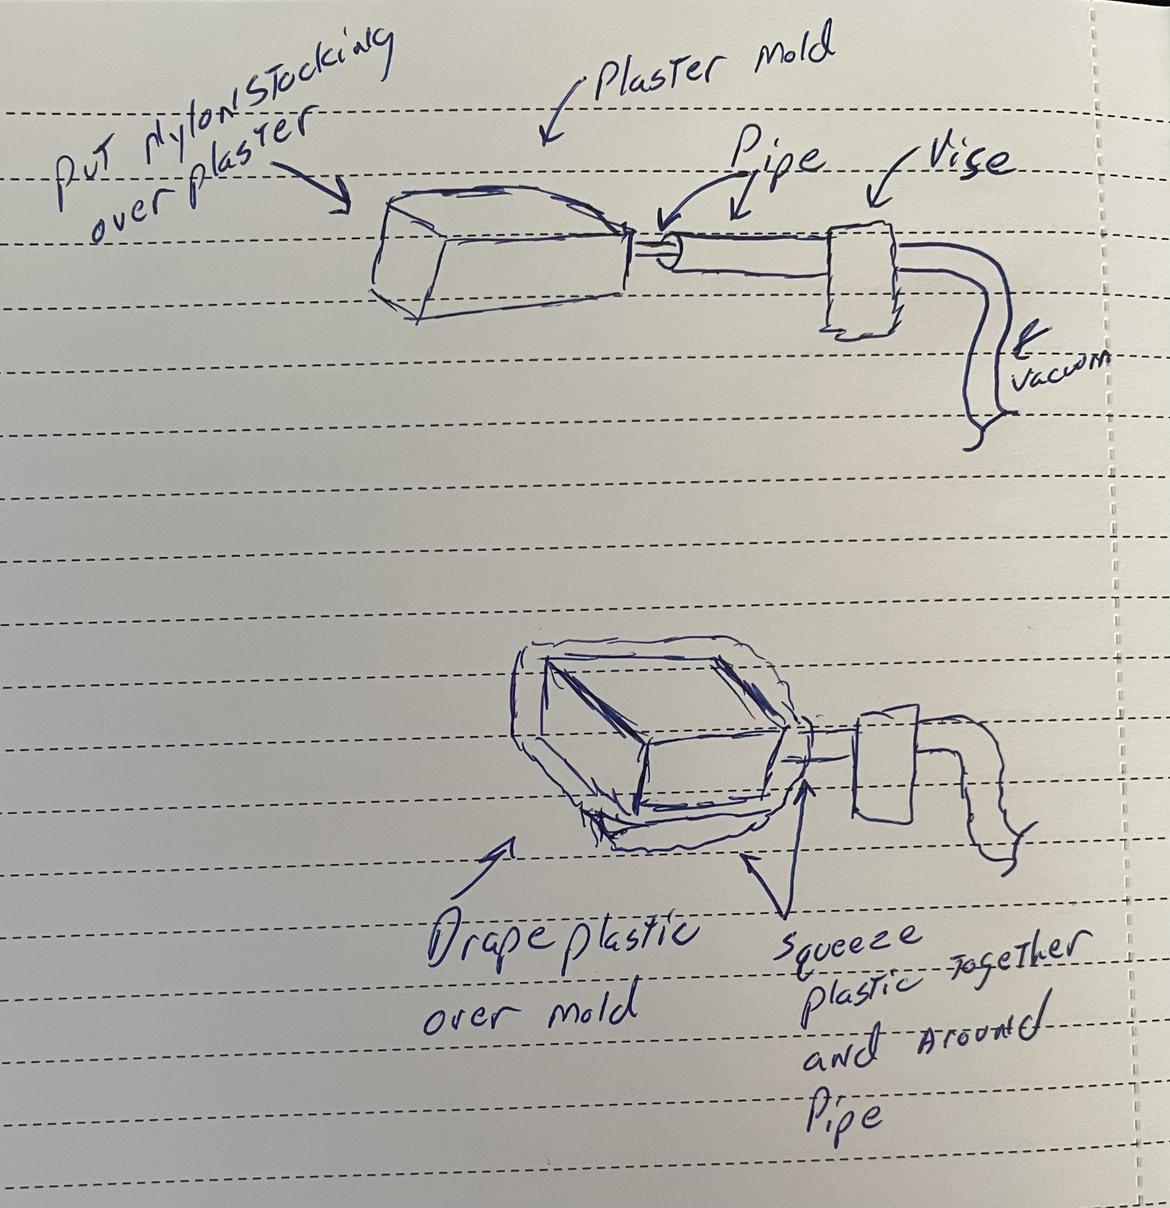 Put Nylon Stocking
over plaster
Plaster Mold
Pipe
Vise
Vacuum
Drape plastic
over mold
Squeeze
Plastic Together
and Around
Pipe